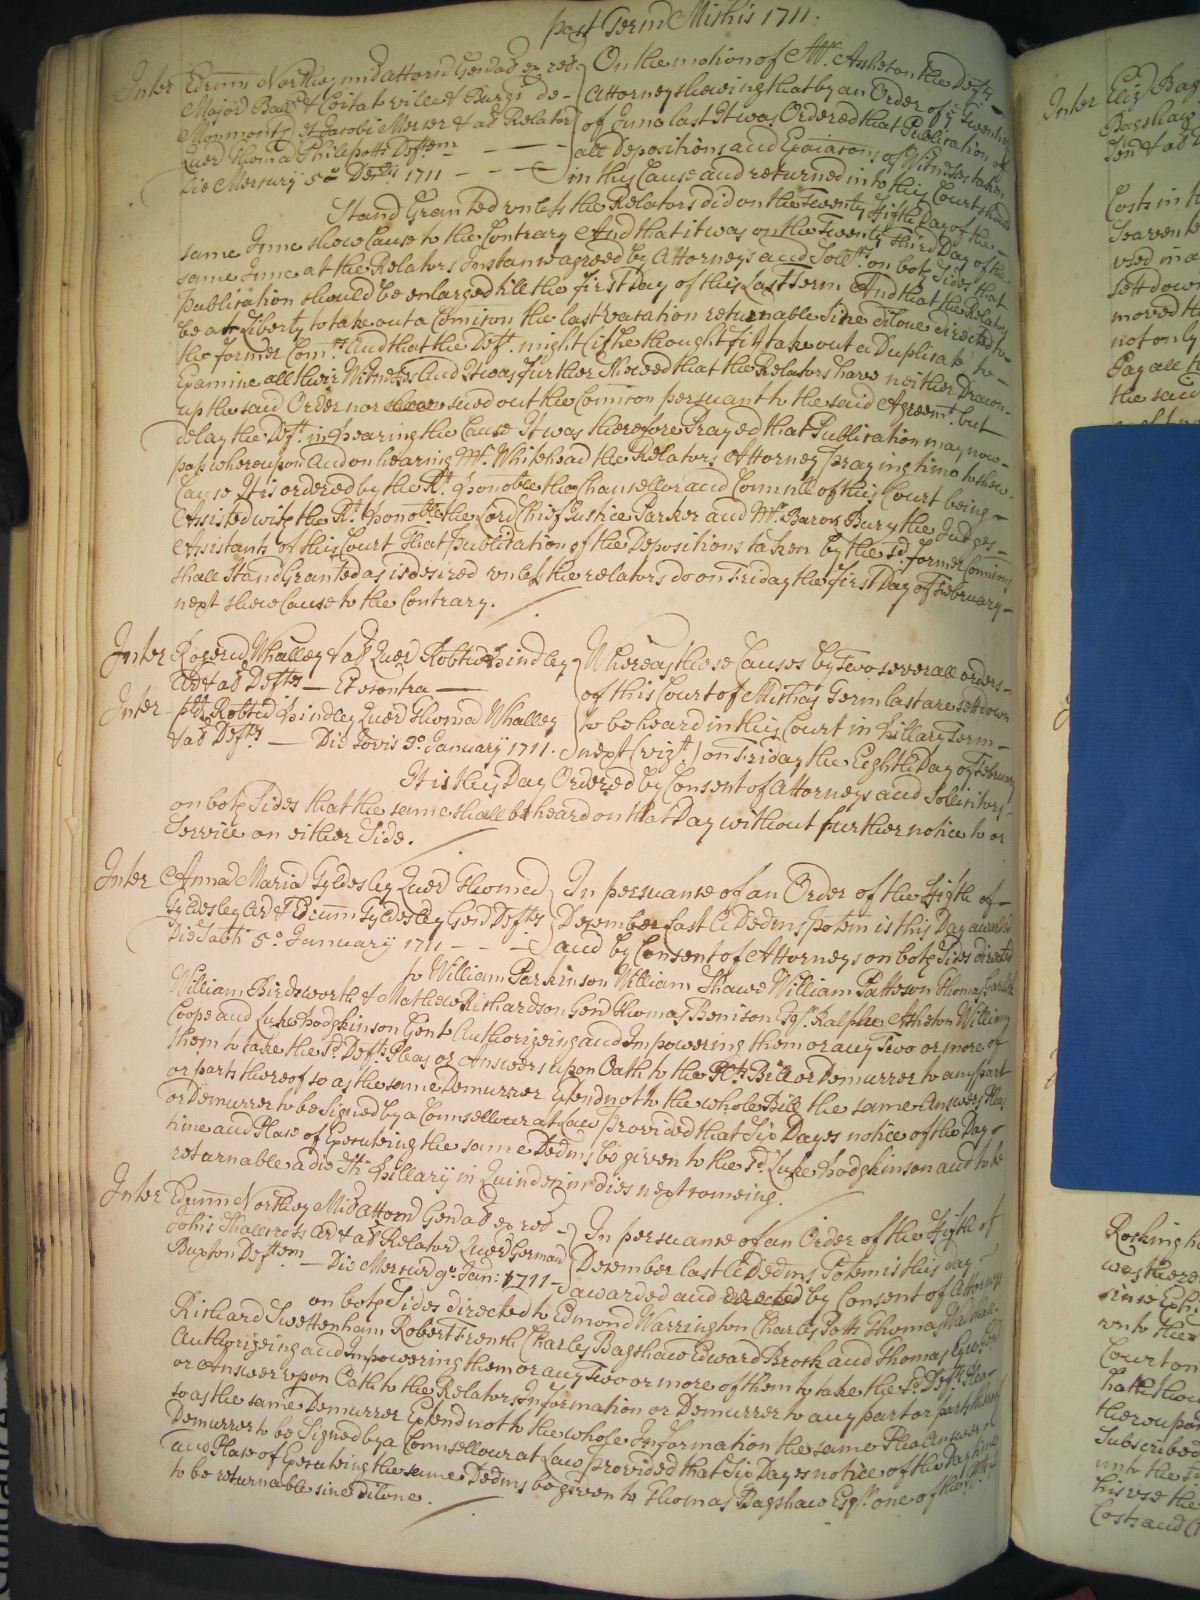 post Termd Michis 1711.
Inter Edrum Northey mid Attorn Gen ad ex red
Major Ball & Civitat vill et Burgi de
Monmouth et Jacobi Mercer & ad Relator
Quer Thoma Philpotts Deftem
Die Mercurij 5o Decris 1711
On the motion of Mr. Asheton the Defts
Attorney shewing that by an Order of ye Twentieth
of June last It was Ordered that Publication of
all Depositions and Exaiacons of Witnesses taken
in this Cause and returned into this Court should
Stand Granted unless the Relators did on the Twenty Fifth Day of the
same June shew Cause to the Contrary And that it was on the Twenty Third Day of the
same June at the Relators Instance agreed by Attorneys and Sollrs on both Sides that
Publication should be enlarged till the First Day of this Last Term And that the Relators
be at Liberty to take out a Comicon the last vacation returnable Sine dilone directed to
the former Comrs And that the Deft. might (if he thought fit) take out a Duplicate to
Examine all their Witnesses And It was Further Shewed that the Relators have neither Drawn
up the said Order nor sued out the Comicon persuant to the said Agreemt. but
delay the Deft. in hearing the Cause It was therefore Prayed that Publication may now
pass whereupon And on hearing Mr. Whitehead the Relators Attorney praying time to shew
Cause It is ordered by the Rt. Honoble the Chancellor and Councill of this Court being
Assisted with the Rt. Honoble the Lord Chief Justice Parker and Mr. Baron Bury the Judges
Assistants of this Court That Publication of the Depositions taken by the sd. former Comicon
shall Stand Granted as is desired unless the relators do on Friday the First Day of February
next shew Cause to the Contrary.
Inter Rogerus Whalley & ad Quer Robtus Hindley
Ar & ad Defts Et e contra
Inter Robtus Hindley Quer Thomas Whalley
& ad Defts Die Jovis 3o January 1711.
Whereas these Causes by Two severall orders
of this Court of Michas Term last are sett down
to be heard in this Court in Hillary Term
next (vizt.) on Friday the Eighth Day of February
It is this Day Ordered by Consent of Attorneys and Sollicitors
on both Sides that the same shall be heard on that Day without further notice to or
Service on either Side.
Inter Anna Maria Tyldesley Quer Thomas
Tyldesley Ar & Edrum Tyldesley Gen Defts
Die Sabti 5o January 1711
In persuance of an Order of the Fifth of
December last A Dedms Potem is this Day awarded
and by Consent of Attorneys on both Sides directed
to William Parkinson William Shawe William Patteson Thomas
William Birdsworth & Mathew Richardson Gen Thomas Benison Esqr. Ralphe Asheton William
Coope and Luke Hodgkinson Gent Authorizeing and Impowering them or any Two or more of
them to take the sd. Defts Pleas or Answers upon Oath to the Plts Bill or Demurrer to any part
or parts thereof so as the same Demurrer Extend not to the whole Bill the same Answers Pleas
or Demurrer to be Signed by a Counsellour at Law provided that Six Dayes notice of the Day
time and Place of Executeing the same Dedms be given to the sd. Luke Hodgkinson and to be
returnable a die Sti Hillarij in Quindecim dies next comeing.
Inter Edrum Northey Mid Attorn Gen ad ex red
Johis Shallcross Ar & ad Relator Quer German
Buxton Deftem Die Mercur 9o Jan: 1711
In persuance of an Order of the Fifth of
December last A Dedms Potem is this day
awarded and directed by Consent of Attorneys
on both Sides directed to Edmond Warrington Charles Potts Thomas
Richard Swettenham Robert French Charles Bagshaw Edward Brock and Thomas
Authorizeing and Impowering them or any Two or more of them to take the sd. Defts Plea
or Answer upon Oath to the Relators Information or Demurrer to any part or parts thereof
so as the same Demurrer Extend not to the whole Information the same Plea Answer or
Demurrer to be Signed by a Counsellour at Law provided that Six Dayes notice of the Day time
and Place of Executeing the same Dedms be given to Thomas Bagshaw Esqr. one of the
to be returnable sine dilone.
Inter Eliz Bag
Bagshaw
Costs in t
used in a
sett down
moved th
not only
Pay all t
the said
was there
unto the
Court on
thereupon
Subscribed
unto the
his use the
Costs and